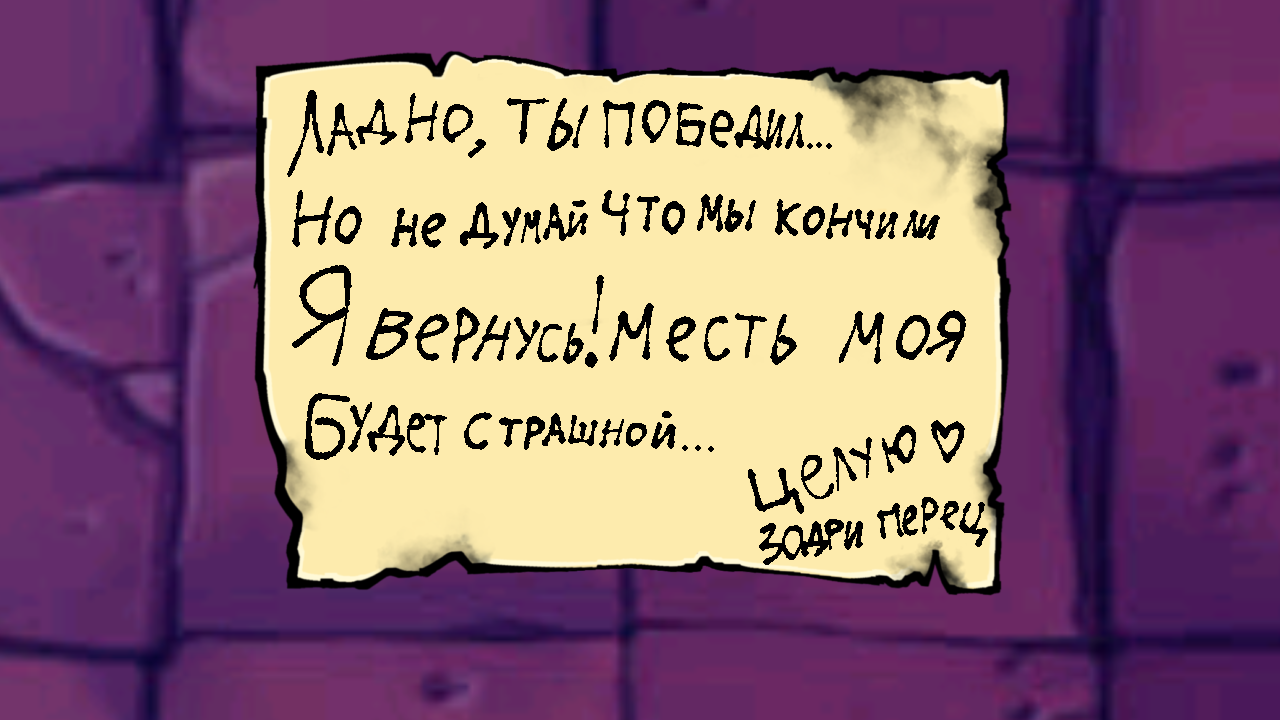 Ладно, ты победил...
Но не думай что мы кончили
Я вернусь! Месть моя
будет страшной...
целую ♡
Зодри перец